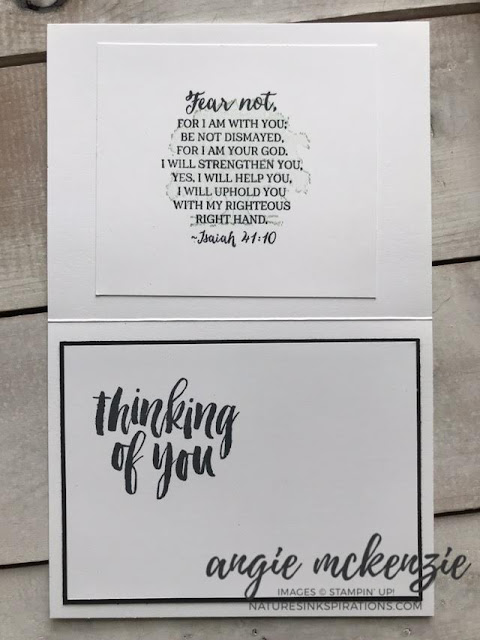 Fear not,
FOR I AM WITH YOU;
BE NOT DISMAYED,
FOR I AM YOUR GOD.
I WILL STRENGTHEN YOU,
YES, I WILL HELP YOU,
I WILL UPHOLD YOU
WITH MY RIGHTEOUS
RIGHT HAND.
~Isaiah 41:10
thinking
of you
angie mckenzie
IMAGES © STAMPIN' UP!
NATURESINKSPIRATIONS.COM